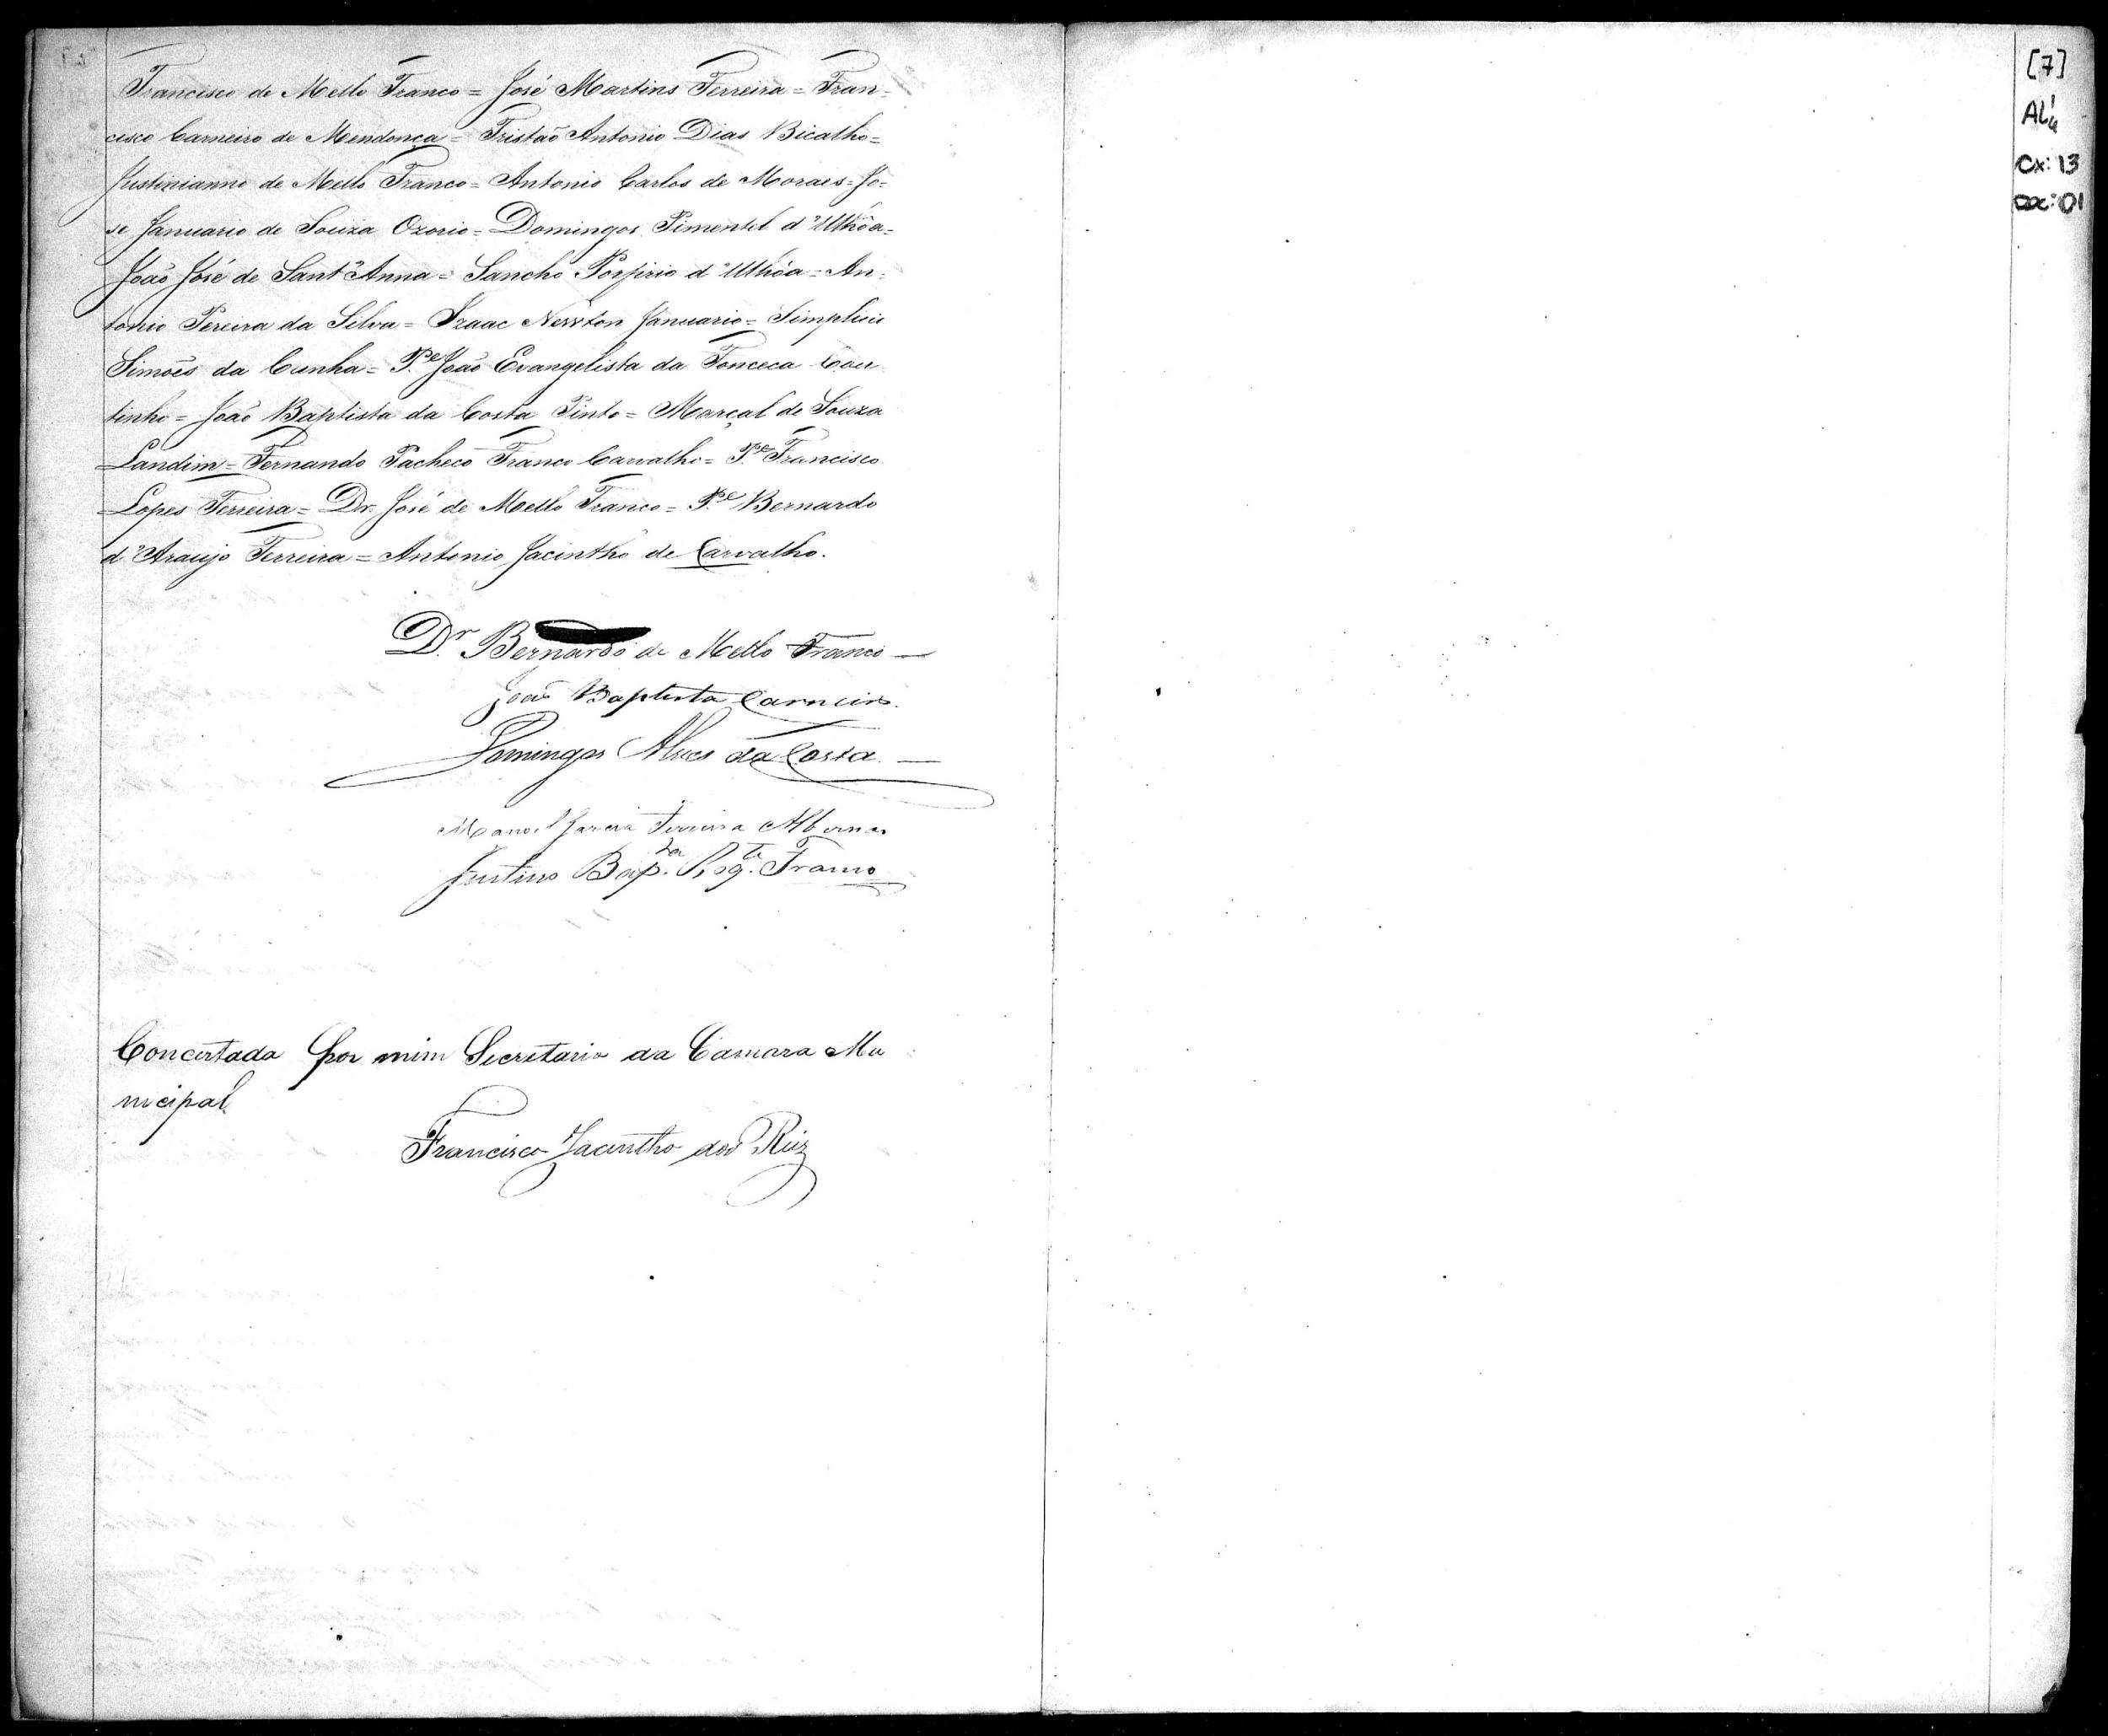 Francisco de Mello Franco = José Martins Ferreira = Fran=
cisco Carneiro de Mendonça = Tristão Antonio Dias Bicalho=
Justinianno de Mello Franco = Antonio Carlos de Moraes = Jo=
se Januario de Souza Ozorio = Domingos Pimentel d'Ulhôa=
João José de Sant'Anna = Sancho Porfirio d'Ulhôa = An=
tonio Pereira da Silva = Izaac Newton Januario = Simplicio
Simões da Cunha = P.e João Evangelista da Fonceca Cou
tinho = João Baptista da Costa Pinto = Marçal de Souza
Landim = Fernando Pacheco Franco Carvalho = P.e Francisco
Lopes Ferreira = Dr. José de Mello Franco = P.e Bernardo
d'Araujo Ferreira = Antonio Jacintho de Carvalho.
Dr. Bernardo de Mello Franco —
João Baptista Carneiro.
Domingos Alves da Costa. —
Manoel Garcia Ferreira
Justino Bap.ta Franco
Concertada por mim Secretario da Camara Mu
nicipal
Francisco Jacintho dos
[7]
Cx: 13
: 01